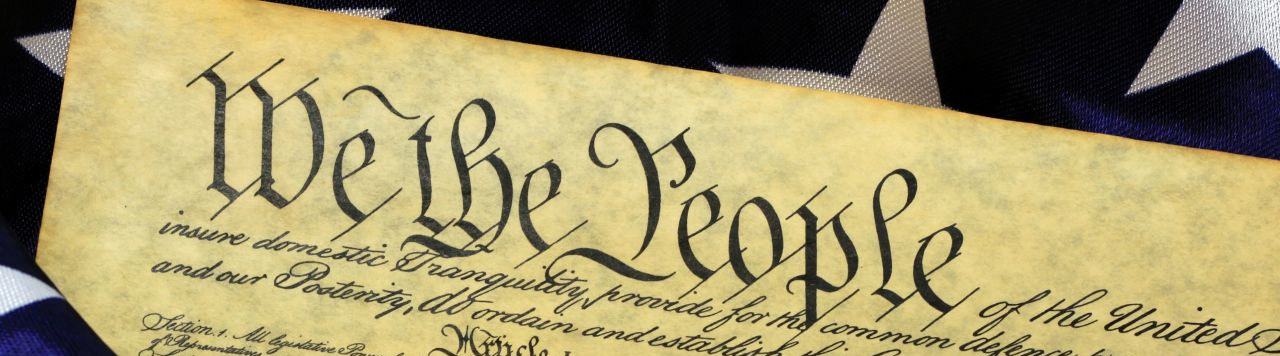 We the People of the United
insure domestic Tranquility, provide for the common defence,
and our Posterity, do ordain and establish
Article
Section. 1. All legislative
of Representatives